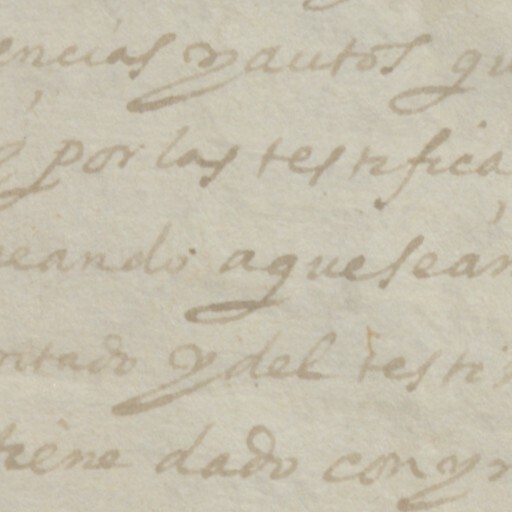 encias y autos qu
y por las testifica
eando aquesean
citado y del testi
tiene dado con yn